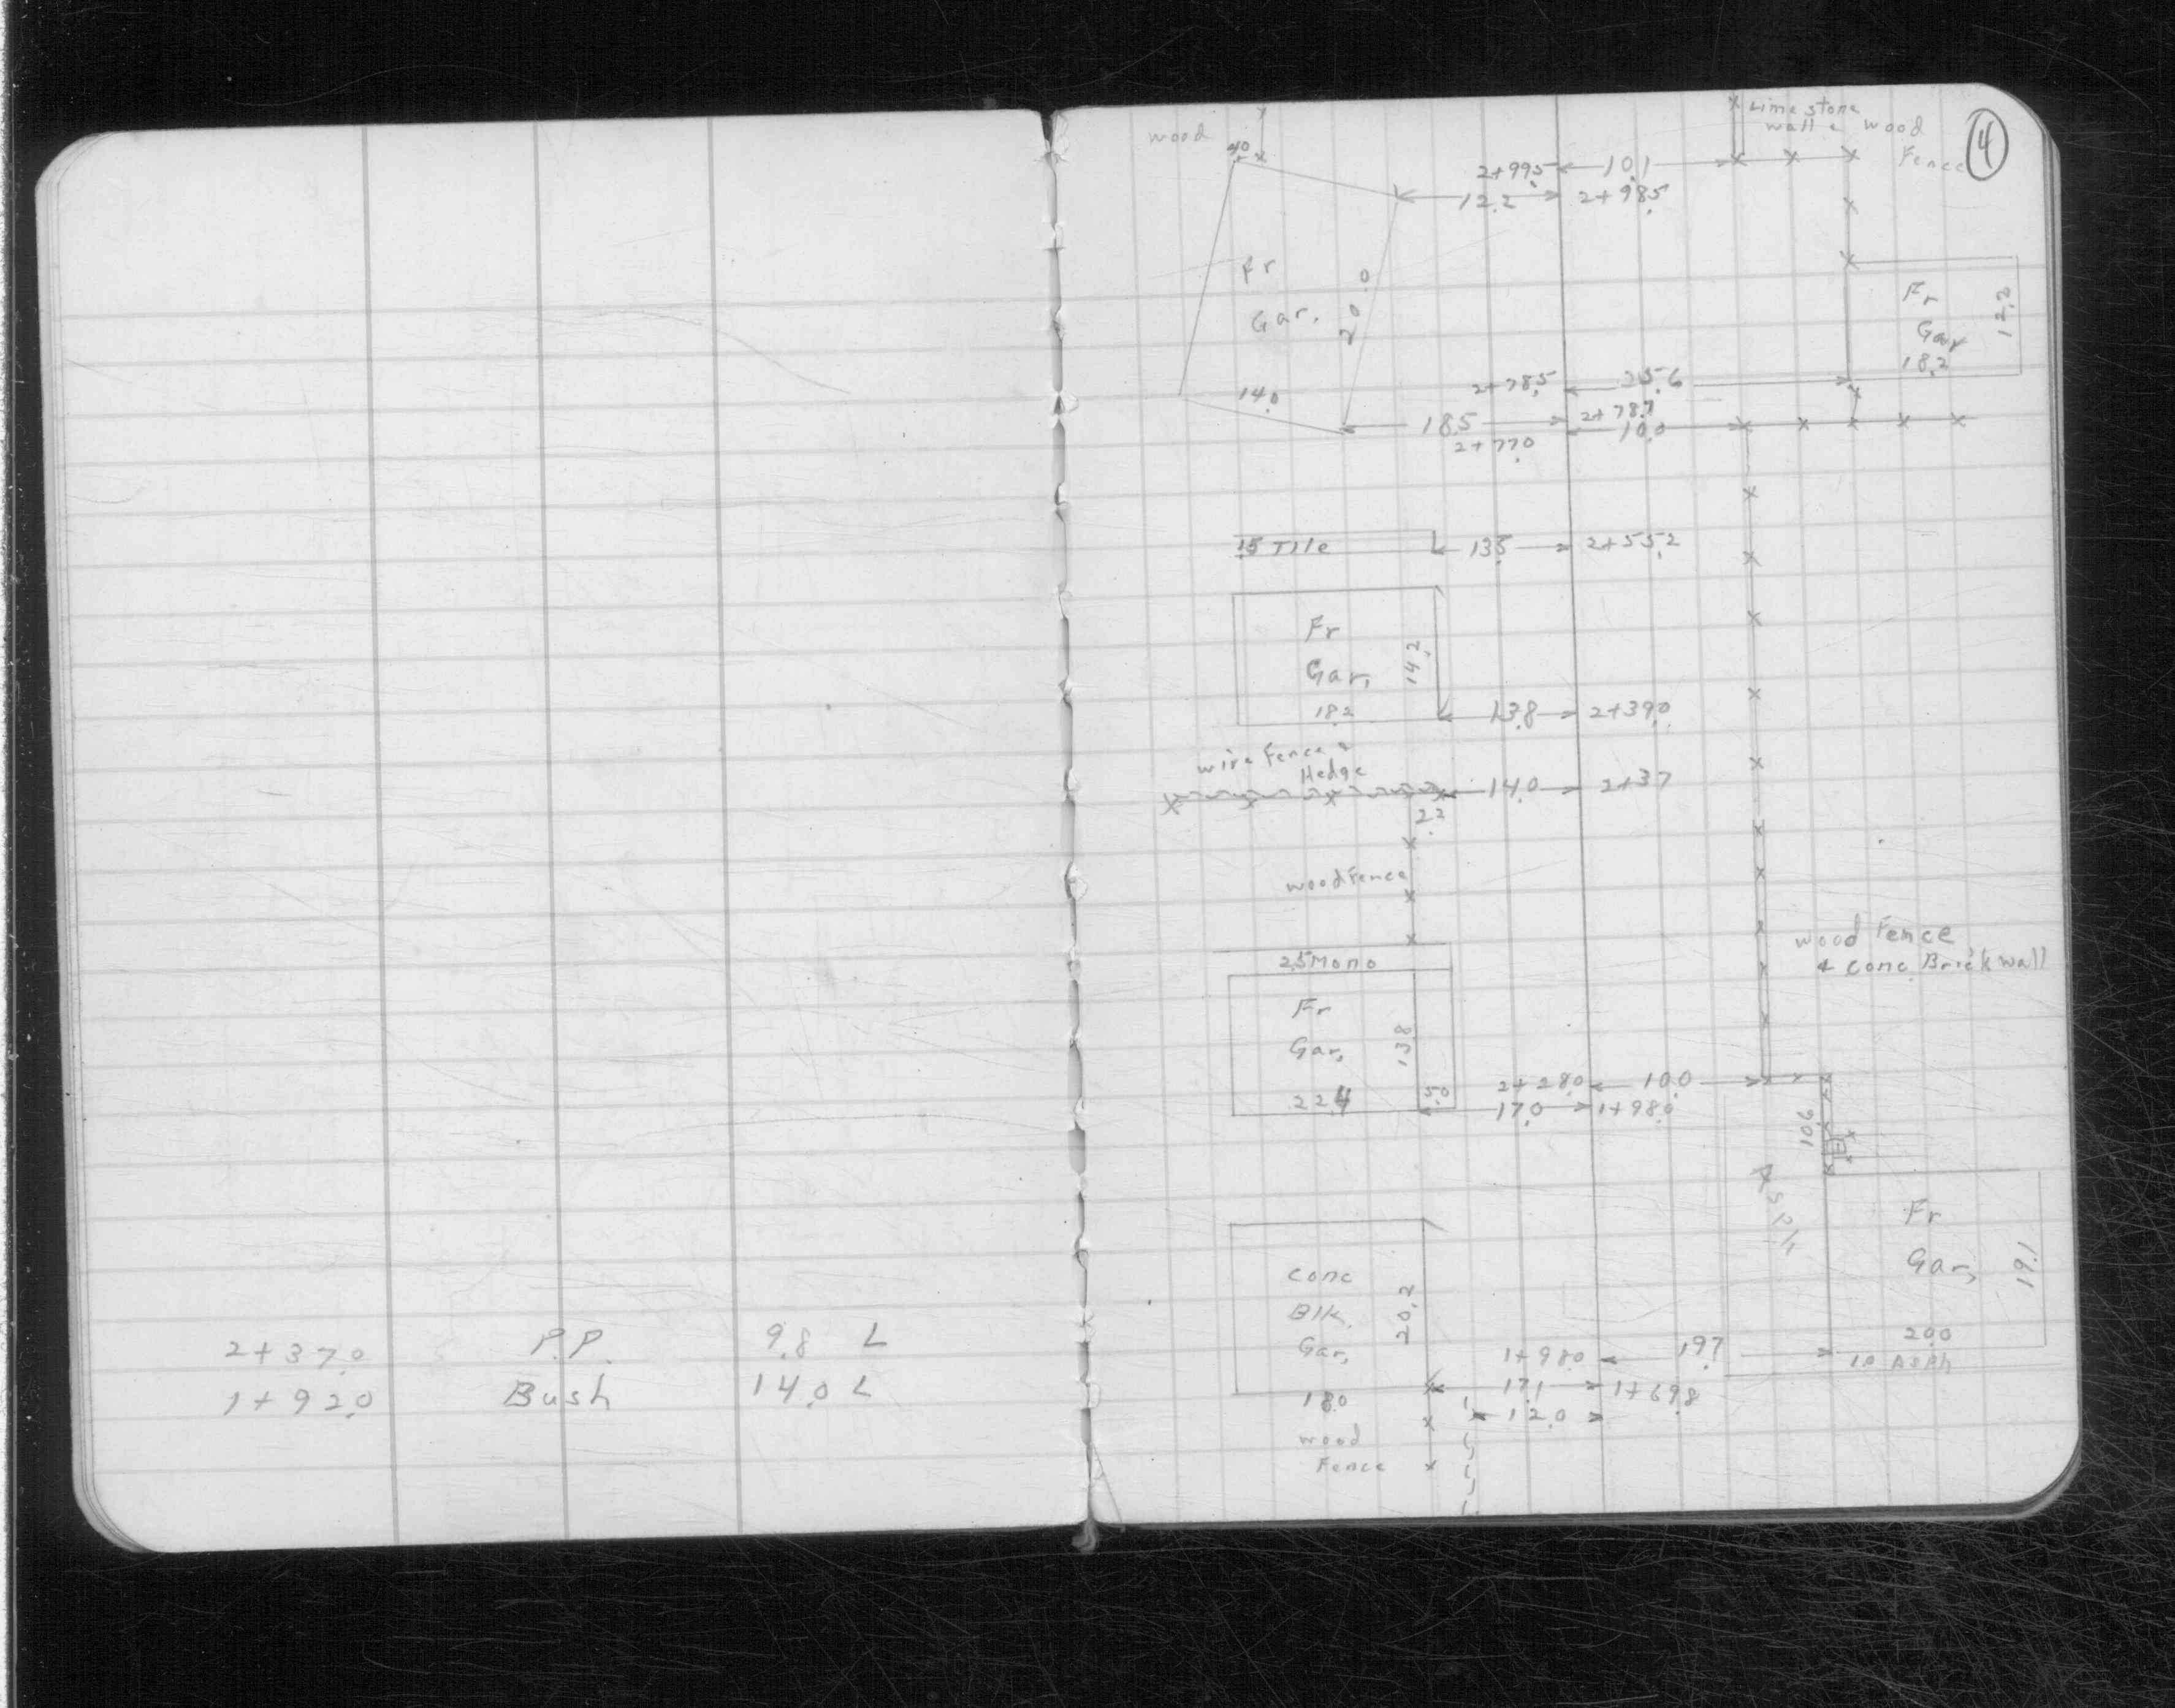 2+37.0 P.P. 9.8 L
1+92.0 Bush 14.0 L
4
Limestone
wall & wood
Fence
wood
4.0
2+99.5 10.1
12.2 2+98.5
Fr
Gar.
20.0
14.0
Fr
Gar
18.2
12.2
2+78.5 25.6
2+78.7
18.5 10.0
2+77.0
15 Tile 13.5 2+55.2
Fr
Gar.
14.2
18.2
13.8 2+39.0
wire Fence &
Hedge
14.0 2+37
2.2
wood Fence
wood Fence
& conc Brick wall
2.5 Mono
Fr
Gar.
13.8
22.4
5.0
2+28.0 10.0
17.0 1+98.0
10.6
Asph
Fr
Gar.
19.1
20.0
1.0 Asph
conc
Blk.
Gar.
20.2
18.0
1+98.0 19.7
17.1 1+69.8
12.0
wood
Fence